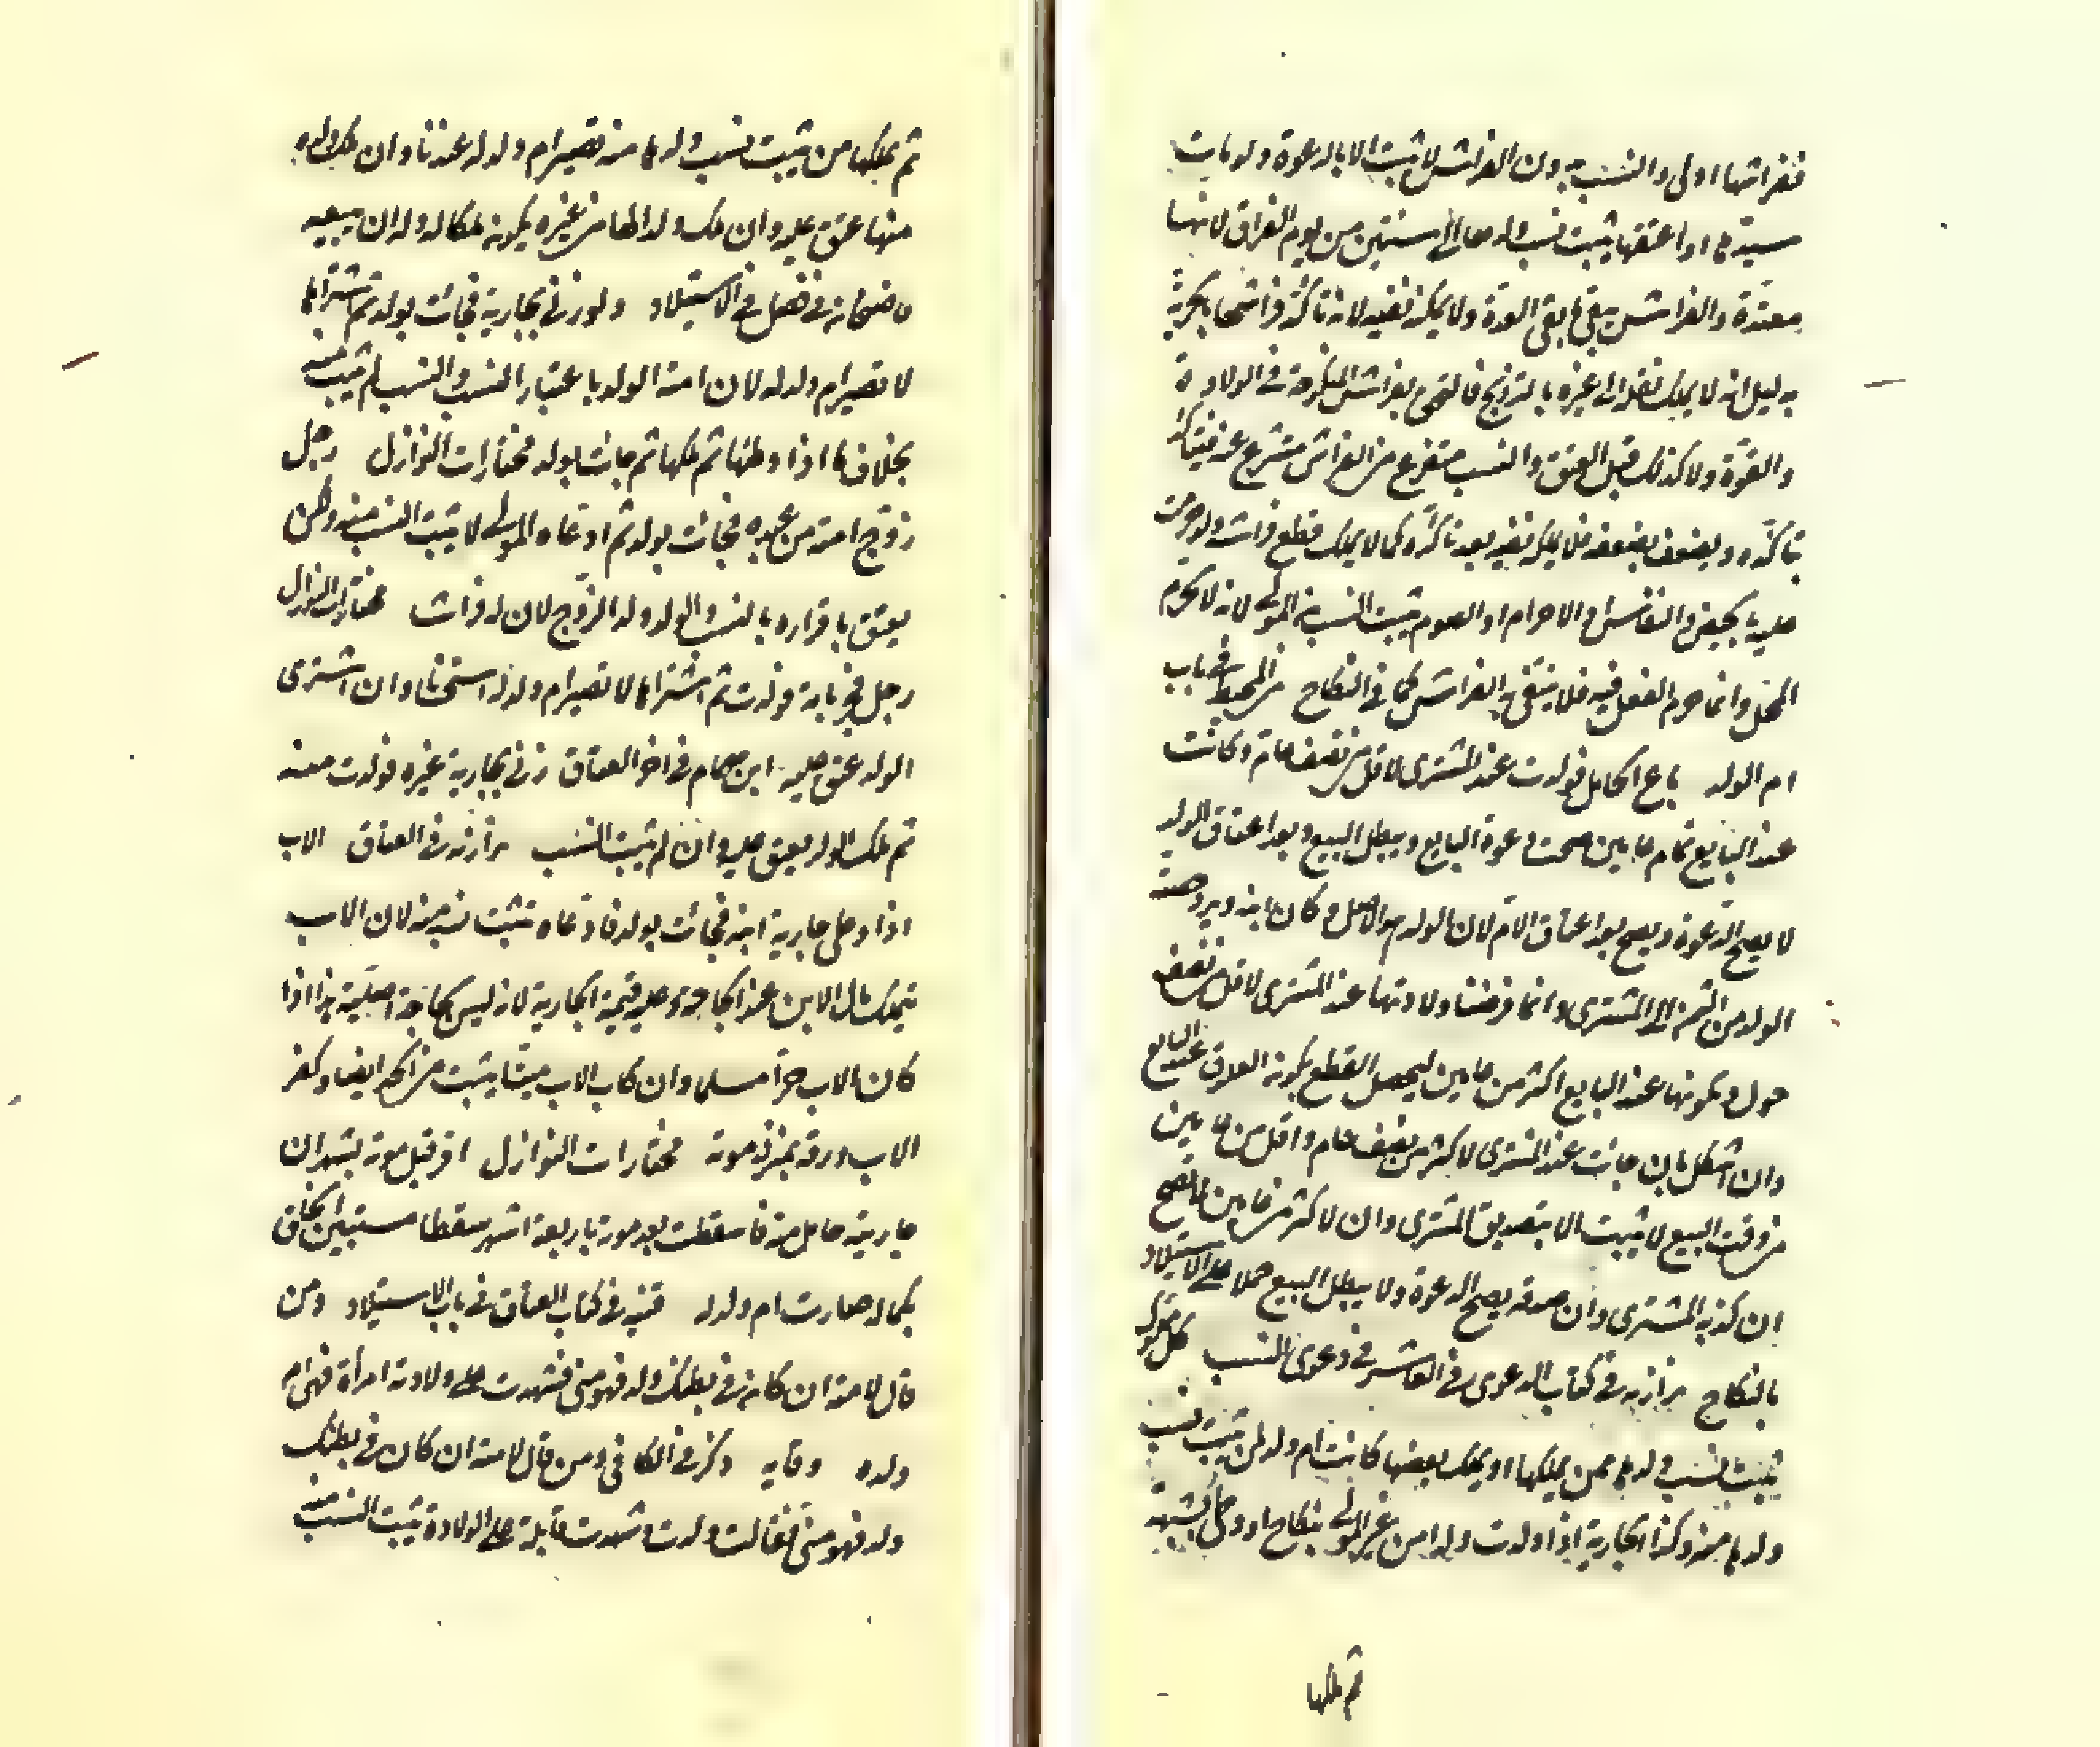 ففراشها اولى والنسب بدون الفراش لا يثبت الا بالدعوة ولو مات
سيدها او اعتقها يثبت نسب ولدها الى سنتين من يوم الفراق لانها
معتدة والفراش يبقى ما بقى العدة ولا يمكنه نفيه لانه تأكد فراشها بالحرية
بدليل انه لا يملك نقله الى غيره بالتزويج فالتحق بفراش المنكوحة في الولادة
والقوة ولا كذلك قبل العتق والنسب متفرع من الفراش متشرع عنه فيتأكد
بتأكده ويضعف بضعفه فلا يملك نفيه بعد تأكده كما لا يملك قطع فراشه ولو حرمت
عليه بالحيض والنفاس والاحرام او الصوم يثبت النسب من المولى لانه لا يحرم
المحل وانما حرم الفعل فيه فلا ينتفى به الفراش كما في النكاح من المحيط في باب
ام الولد باع الحامل فولدت عند المشترى لاقل من نصف عام وكانت
عند البايع تمام عامين صحت دعوة البايع ويبطل البيع وبعد اعتاق الولد
لا يصح الدعوة ويصح بعد اعتاق الام لان الولد هو الاصل وكان ابنه ويرد حصة
الولد من الثمن الى المشترى وانما فرضنا ولادتها عند المشترى لاقل من نصف
حول وكونها عند البايع اكثر من عامين ليحصل القطع بكونه العلاق عند البايع
وان اشكل بان جائت عند المشترى لاكثر من نصف عام واقل من عامين
من وقت البيع لا يثبت الا بتصديق المشترى وان لاكثر من عامين لا تصح
ان كذبه المشترى وان صدقه يصح الدعوة ولا يبطل البيع حملا على الاستيلاد
بالنكاح بزازيه في كتاب الدعوى في العاشر في دعوى النسب كل مملوكة
يثبت نسب ولدها ممن يملكها او يملك بعضها كانت ام ولد لمن يثبت نسب
ولدها منه وكذا الجارية اذا ولدت ولدا من غير المولى بنكاح او وطئ بشبهة
ثم ملكها
ثم يملكها من يثبت نسب ولدها منه تصير ام ولد له عندنا وان ملك ولده
منها عتق عليه وان ملك ولدا لها من غيره يكون ملكا له وله ان يبيعه
قاضيخان في فصل في الاستيلاد ولو زنى بجارية فجائت بولد ثم اشتراها
لا تصير ام ولد له لان امية الولد باعتبار النسب والنسب لم يثبت منه
بخلاف ما اذا وطئها ثم ملكها ثم جائت بولد مختارات النوازل رجل
زوج امته من عبده فجائت بولد ثم ادعاه المولى لا يثبت النسب منه ولكن
يعتق باقراره بالنسب والولد ولد الزوج لان له فراشا مختارات النوازل
رجل فجر بامة فولدت ثم اشتراها لا تصير ام ولد له استحسانا وان اشترى
الولد عتق عليه ابن همام في اخر العتاق زنى بجارية غيره فولدت منه
ثم ملك الولد يعتق عليه وان لم يثبت النسب بزازيه في العتاق الاب
اذا وطى جارية ابنه فجائت بولد فادعاه يثبت نسبه منه لان الاب
يتملك مال الابن عند الحاجة وعليه قيمة الجارية لانه ليس بحاجة اصلية هذا اذا
كان الاب حرا مسلما وان كان الاب ميتا يثبت من الجد ايضا وكفر
الاب ورقه بمنزلة موته مختارات النوازل اقر قبل موته بشهر ان
جاريته حامل منه فاسقطت بعد موته باربعة اشهر سقطا مستبين الخلق
بكماله صارت ام ولد له قنيه في كتاب العتاق في باب الاستيلاد ومن
قال لامته ان كان في بطنك ولد فهو منى فشهدت على ولادته امرأة فهى ام
ولده وقايه ذكر في الكافى ومن قال لامته ان كان في بطنك
ولد فهو منى فقالت ولدت وشهدت قابلة على الولادة يثبت النسب منه